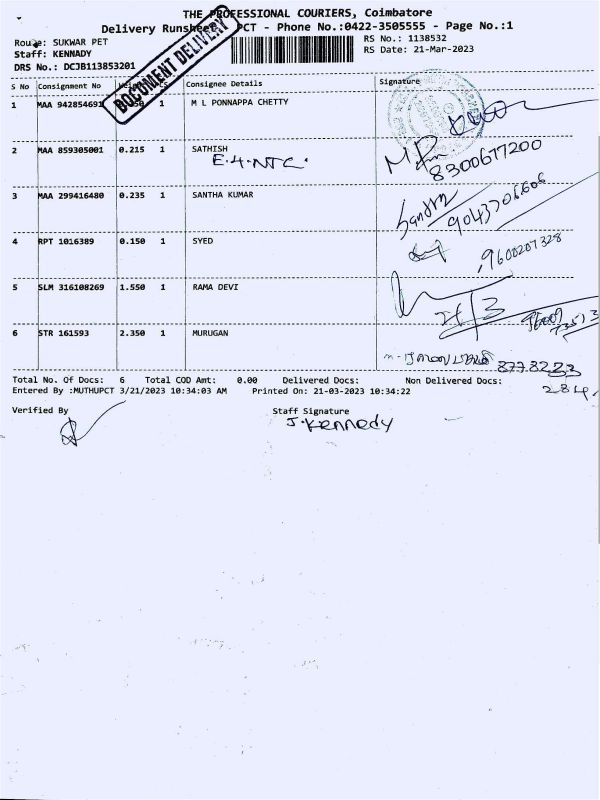 THE PROFESSIONAL COURIERS, Coimbatore
Delivery Runsheet PCT - Phone No.:0422-3505555 - Page No.:1
Route: SUKWAR PET
RS No.: 1138532
Staff: KENNADY
RS Date: 21-Mar-2023
DRS No.: DCJB113853201
DOCUMENT DELIVERY
S No Consignment No Consignee Details Signature
1 MAA 942854691 1 M L PONNAPPA CHETTY
2 MAA 859305001 0.215 1 SATHISH
E.4.NTC.
8300677200
3 MAA 299416480 0.235 1 SANTHA KUMAR
9043706606
4 RPT 1016389 0.150 1 SYED
9600207328
5 SLM 316108269 1.550 1 RAMA DEVI
6 STR 161593 2.350 1 MURUGAN
8778223
284
Total No. Of Docs: 6 Total COD Amt: 0.00 Delivered Docs: Non Delivered Docs:
Entered By :MUTHUPCT 3/21/2023 10:34:03 AM Printed On: 21-03-2023 10:34:22
Verified By Staff Signature
J. Kennedy